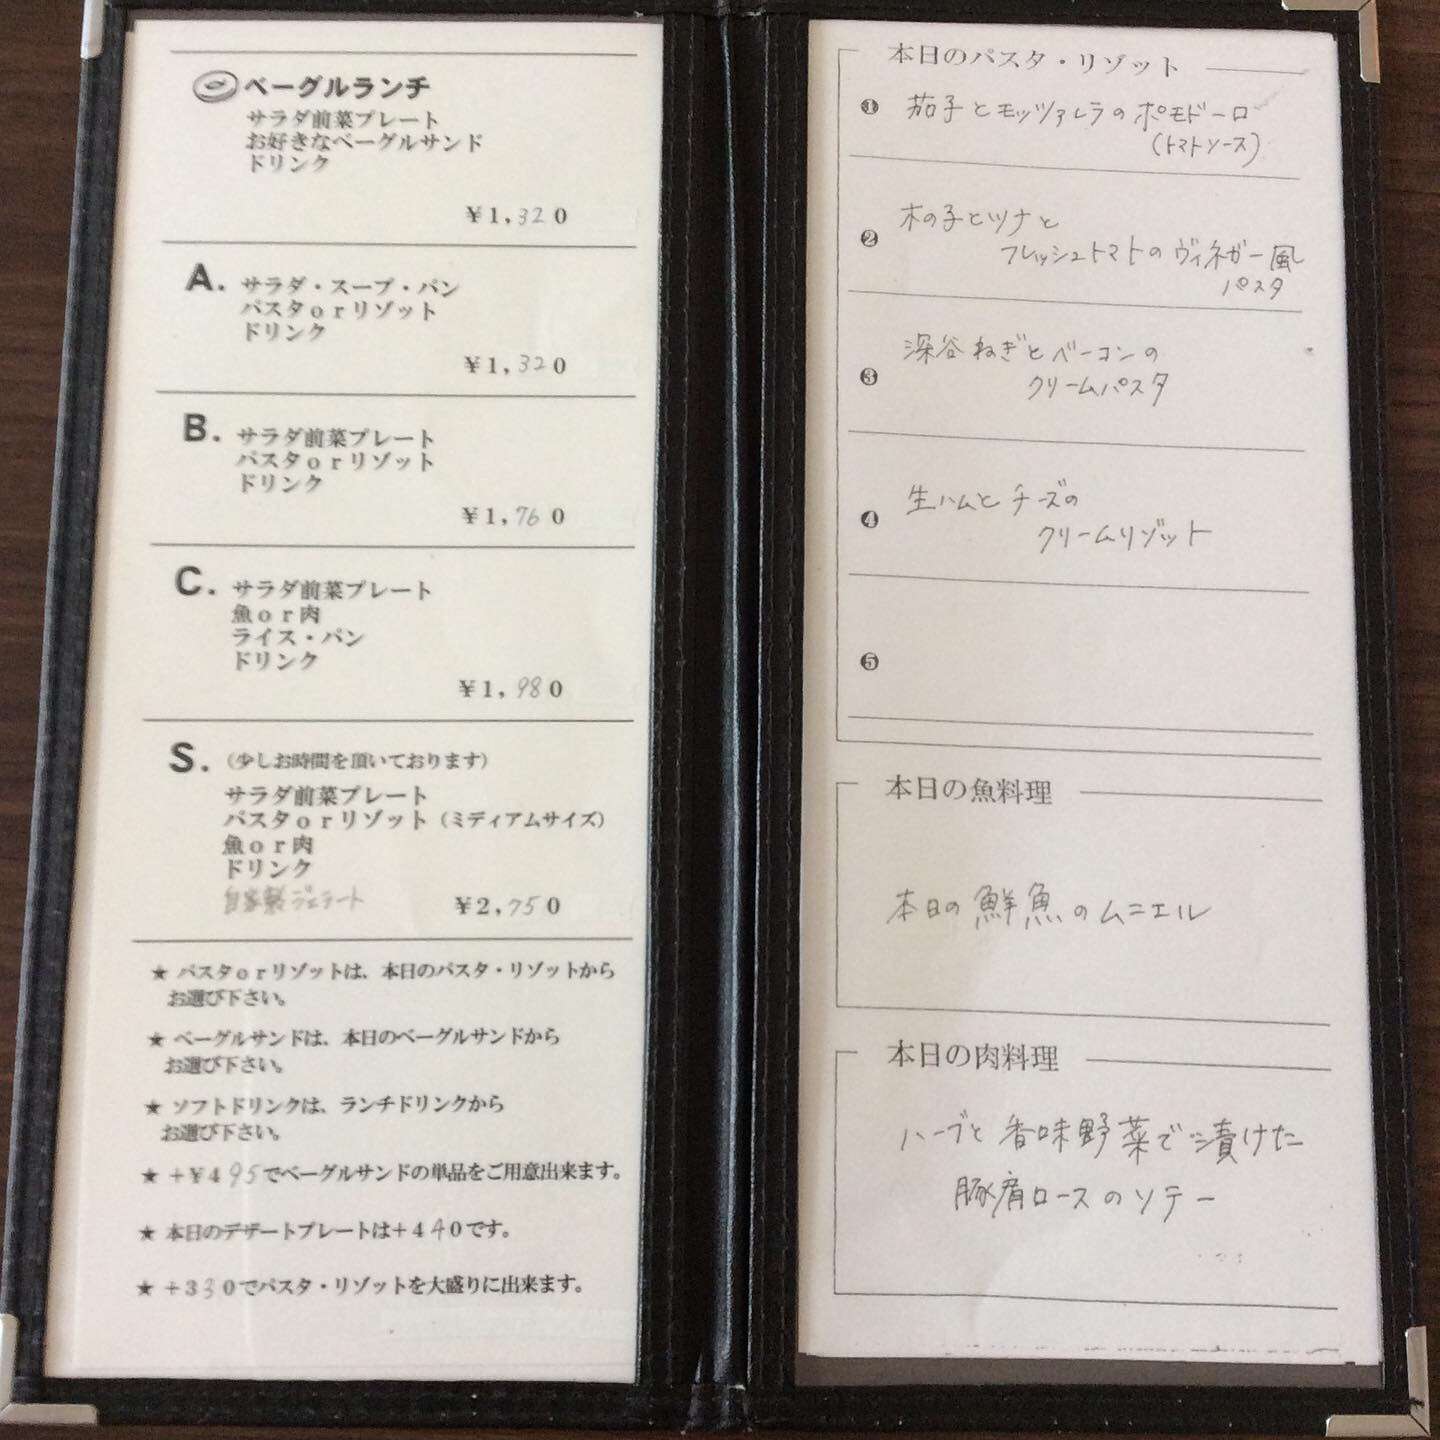 ベーグルランチ
サラダ前菜プレート
お好きなベーグルサンド
ドリンク
¥1,320
A. サラダ・スープ・パン
パスタorリゾット
ドリンク
¥1,320
B. サラダ前菜プレート
パスタorリゾット
ドリンク
¥1,760
C. サラダ前菜プレート
魚or肉
ライス・パン
ドリンク
¥1,980
S. (少しお時間を頂いております)
サラダ前菜プレート
パスタorリゾット(ミディアムサイズ)
魚or肉
ドリンク
自家製ジェラート ¥2,750
★ パスタorリゾットは、本日のパスタ・リゾットから
お選び下さい。
★ ベーグルサンドは、本日のベーグルサンドから
お選び下さい。
★ ソフトドリンクは、ランチドリンクから
お選び下さい。
★ +¥495でベーグルサンドの単品をご用意出来ます。
★ 本日のデザートプレートは+440です。
★ +330でパスタ・リゾットを大盛りに出来ます。
本日のパスタ・リゾット
❶ 茄子とモッツァレラのポモドーロ
(トマトソース)
❷ 木の子とツナと
フレッシュトマトのヴィネガー風
パスタ
❸ 深谷ねぎとベーコンの
クリームパスタ
❹ 生ハムとチーズの
クリームリゾット
❺
本日の魚料理
本日の鮮魚のムニエル
本日の肉料理
ハーブと香味野菜で漬けた
豚肩ロースのソテー